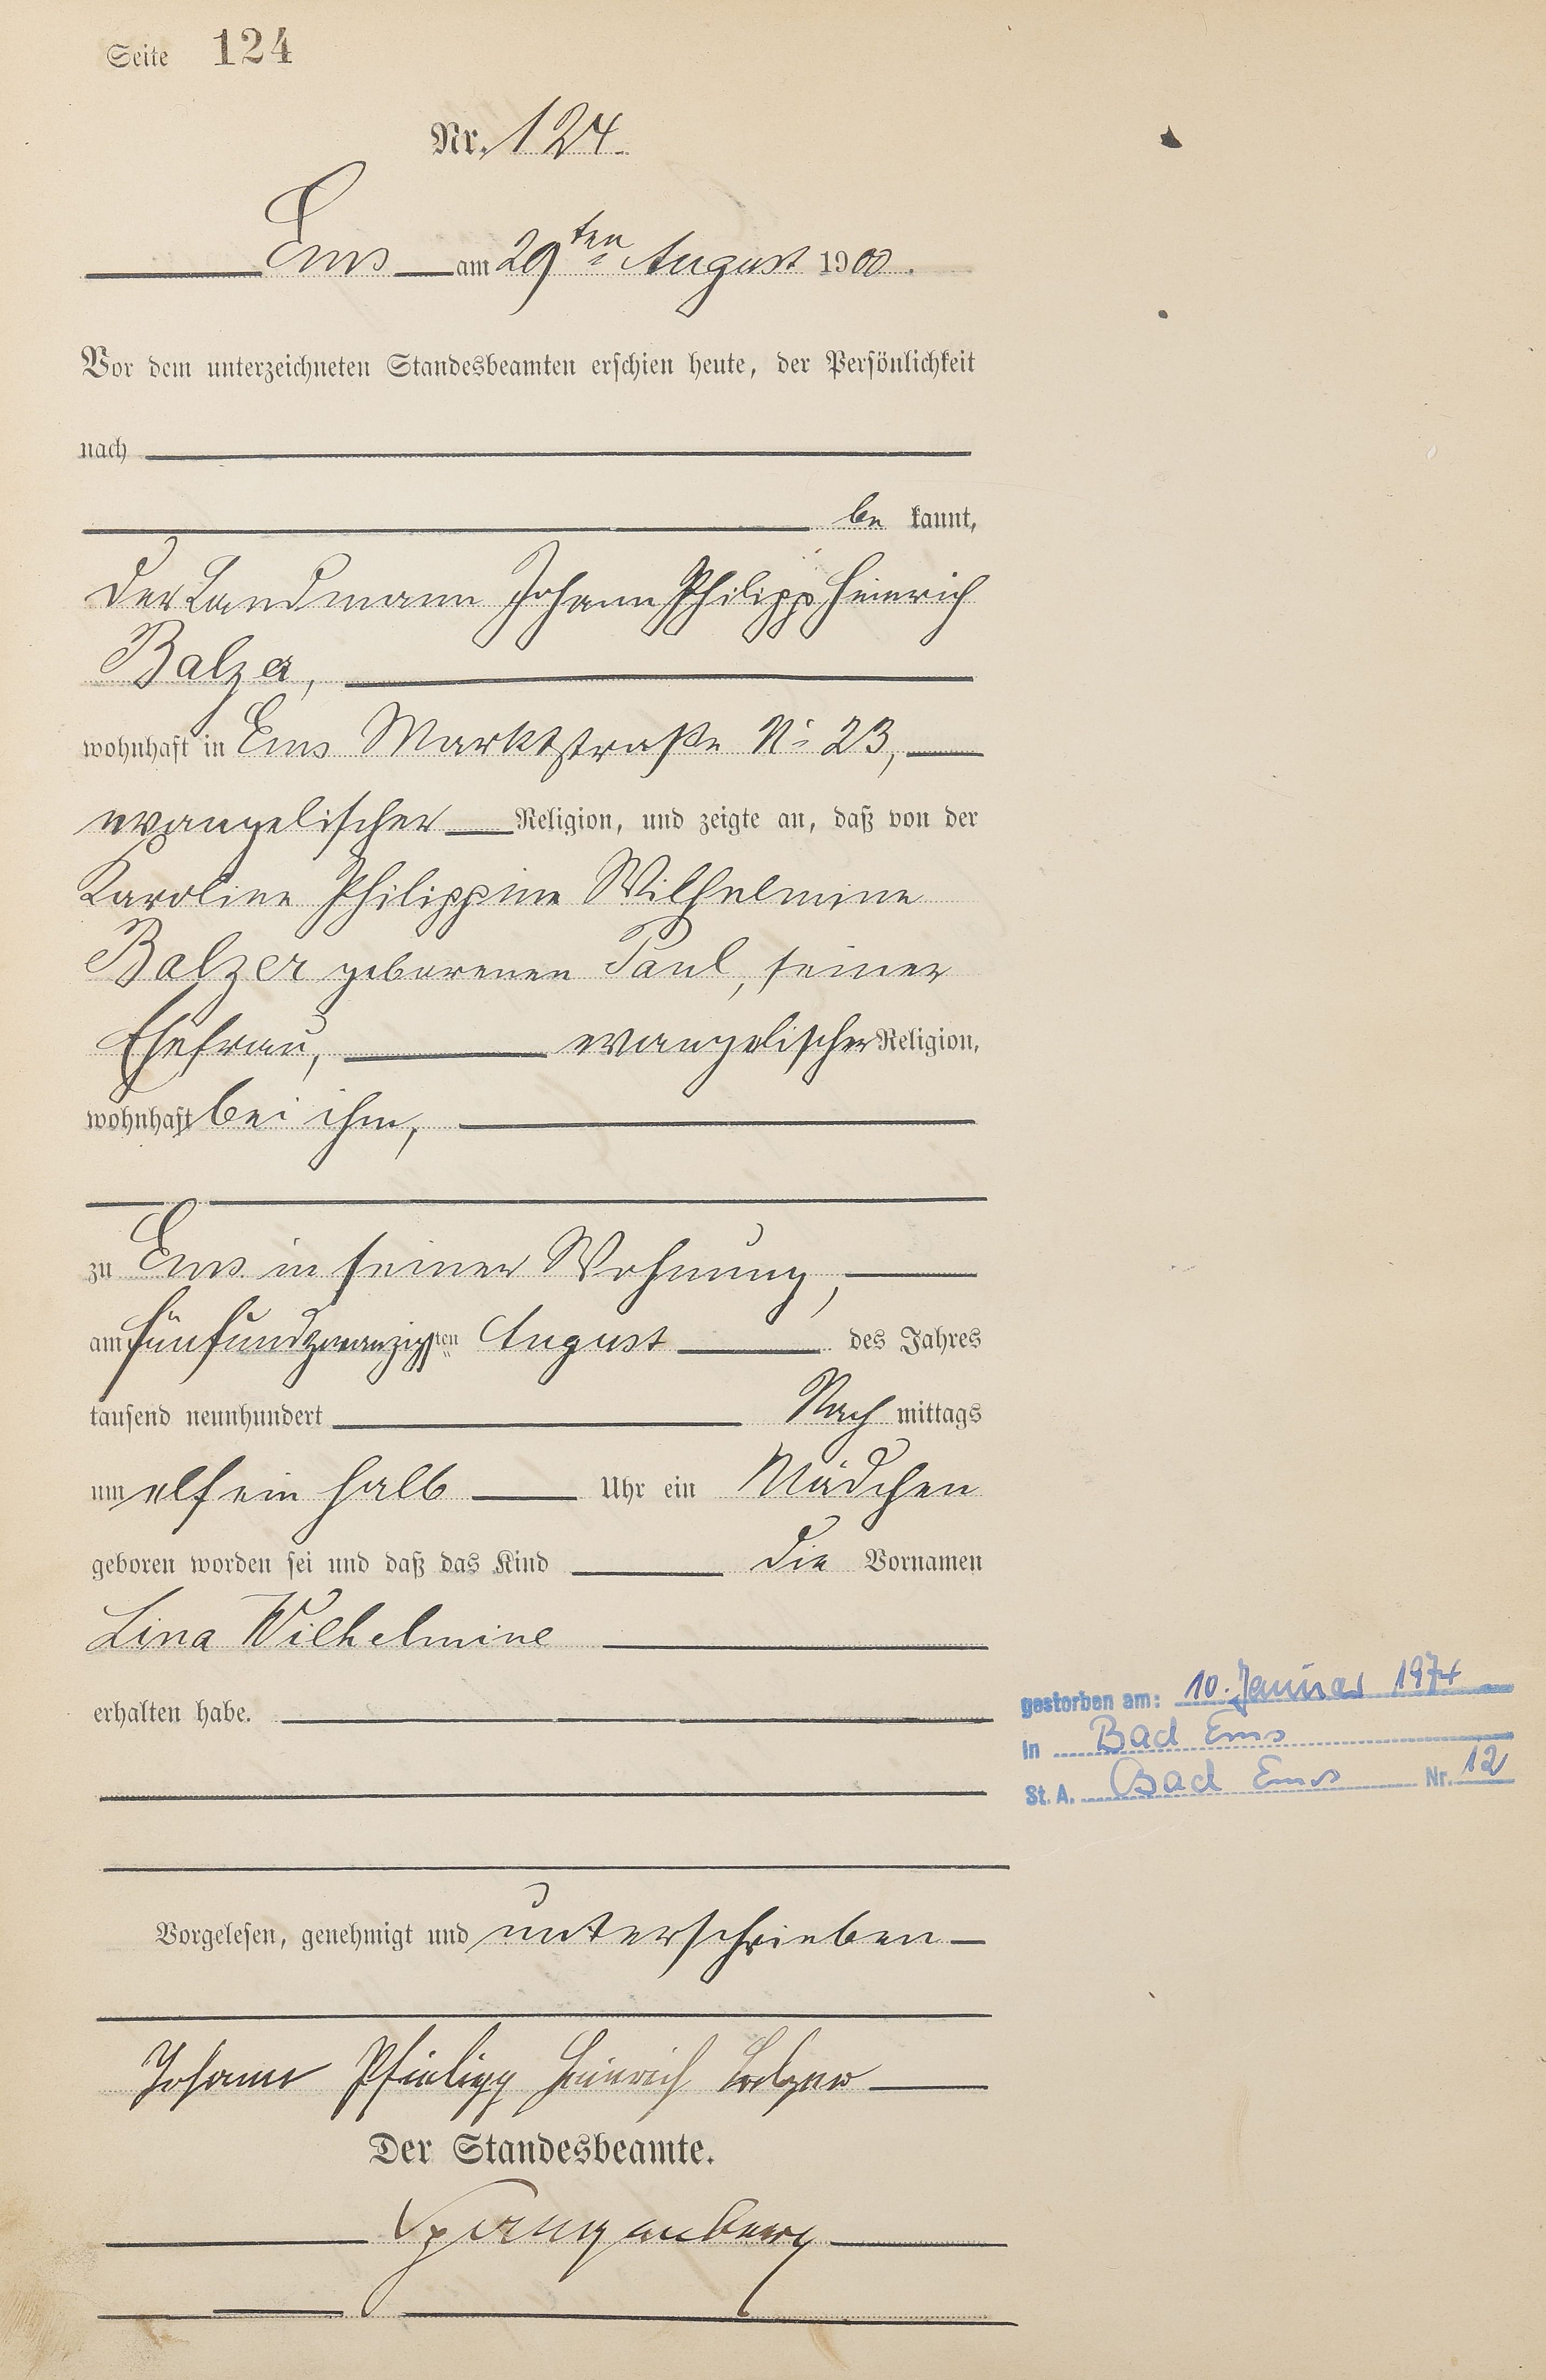 Seite 124
Nr. 124
Ems am 29ten August 1900.
Vor dem unterzeichneten Standesbeamten erschien heute, der Persönlichkeit
nach
be kannt,
der Landmann Johann Philipp Heinrich
Balzer,
wohnhaft in Ems Marktstraße No 23,
evangelischer Religion, und zeigte an, daß von der
Karoline Philippine Wilhelmine
Balzer geborenen Paul, seiner
Ehefrau, evangelischer Religion,
wohnhaft bei ihm,
zu Ems in seiner Wohnung,
am fünfundzwanzigsten August des Jahres
tausend neunhundert Nach mittags
um elf ein halb Uhr ein Mädchen
geboren worden sei und daß das Kind die Vornamen
Lina Wilhelmine
erhalten habe.
gestorben am: 10. Januar 1974
in Bad Ems
St. A. Bad Ems Nr. 12
Vorgelesen, genehmigt und unterschrieben
Johann Philipp Heinrich Balzer
Der Standesbeamte.
Spangenberg